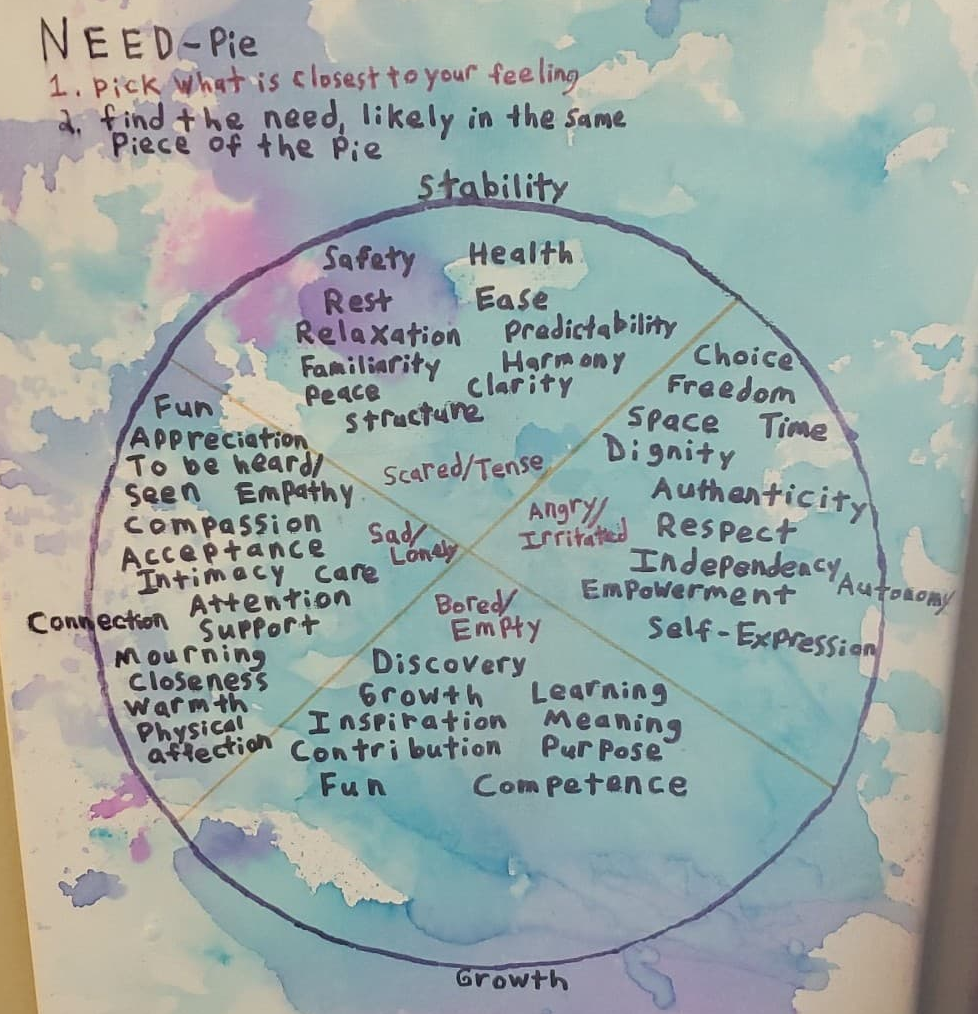 NEED-Pie
1. Pick what is closest to your feeling
2. find the need, likely in the same
Piece of the Pie
Stability
Safety Health
Rest Ease
Relaxation Predictability
Familiarity Harmony
Peace Clarity
Structure
Scared/Tense
Choice
Freedom
Space Time
Dignity
Authenticity
Respect
Independency
Empowerment
Autonomy
Self-Expression
Angry/
Irritated
Fun
Appreciation
To be heard/
Seen Empathy
Compassion
Acceptance
Intimacy Care
Attention
Connection Support
Mourning
Closeness
Warmth
Physical
affection
Sad/
Lonely
Bored/
Empty
Discovery
Growth Learning
Inspiration Meaning
Contribution Purpose
Fun Competence
Growth